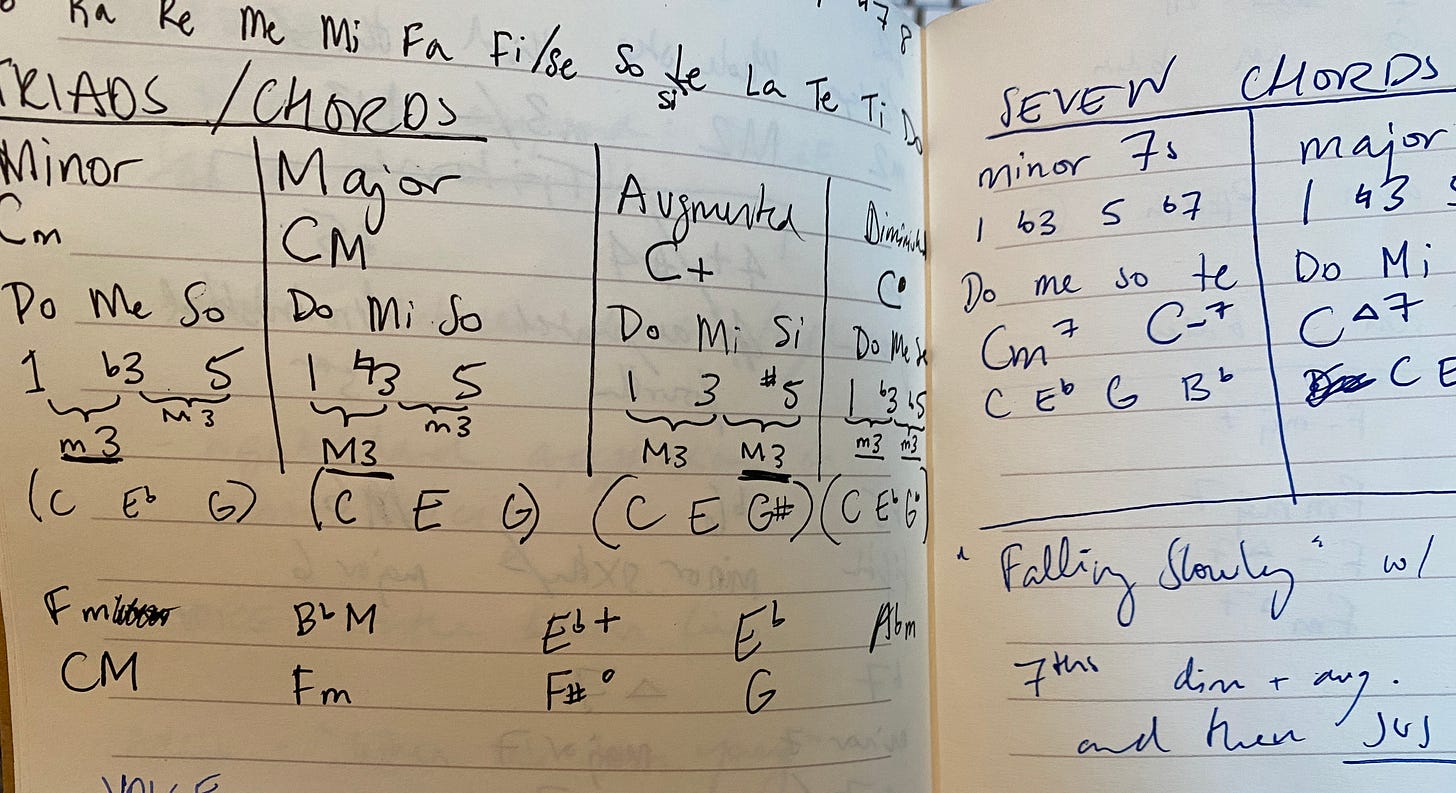 Ra Re Me Mi Fa Fi/Se So le La Te Ti Do
si
7 8
TRIADS / CHORDS
Minor Major Augmented Diminished
Cm CM C+ C°
Do Me So Do Mi So Do Mi Si Do Me Se
1 b3 5 1 ♮3 5 1 3 #5 1 b3 b5
m3 M3 M3 m3 M3 M3 m3 m3
(C Eb G) (C E G) (C E G#) (C Eb Gb)
Fm BbM Eb+ Eb Abm
CM Fm F#° G
VOICE
SEVEN CHORDS
minor 7s major
1 b3 5 b7 1 ♮3 5
Do me so te Do Mi
Cm7 C-7 C△7
C Eb G Bb C E
"Falling Slowly" w/
7ths dim + aug.
and then sus